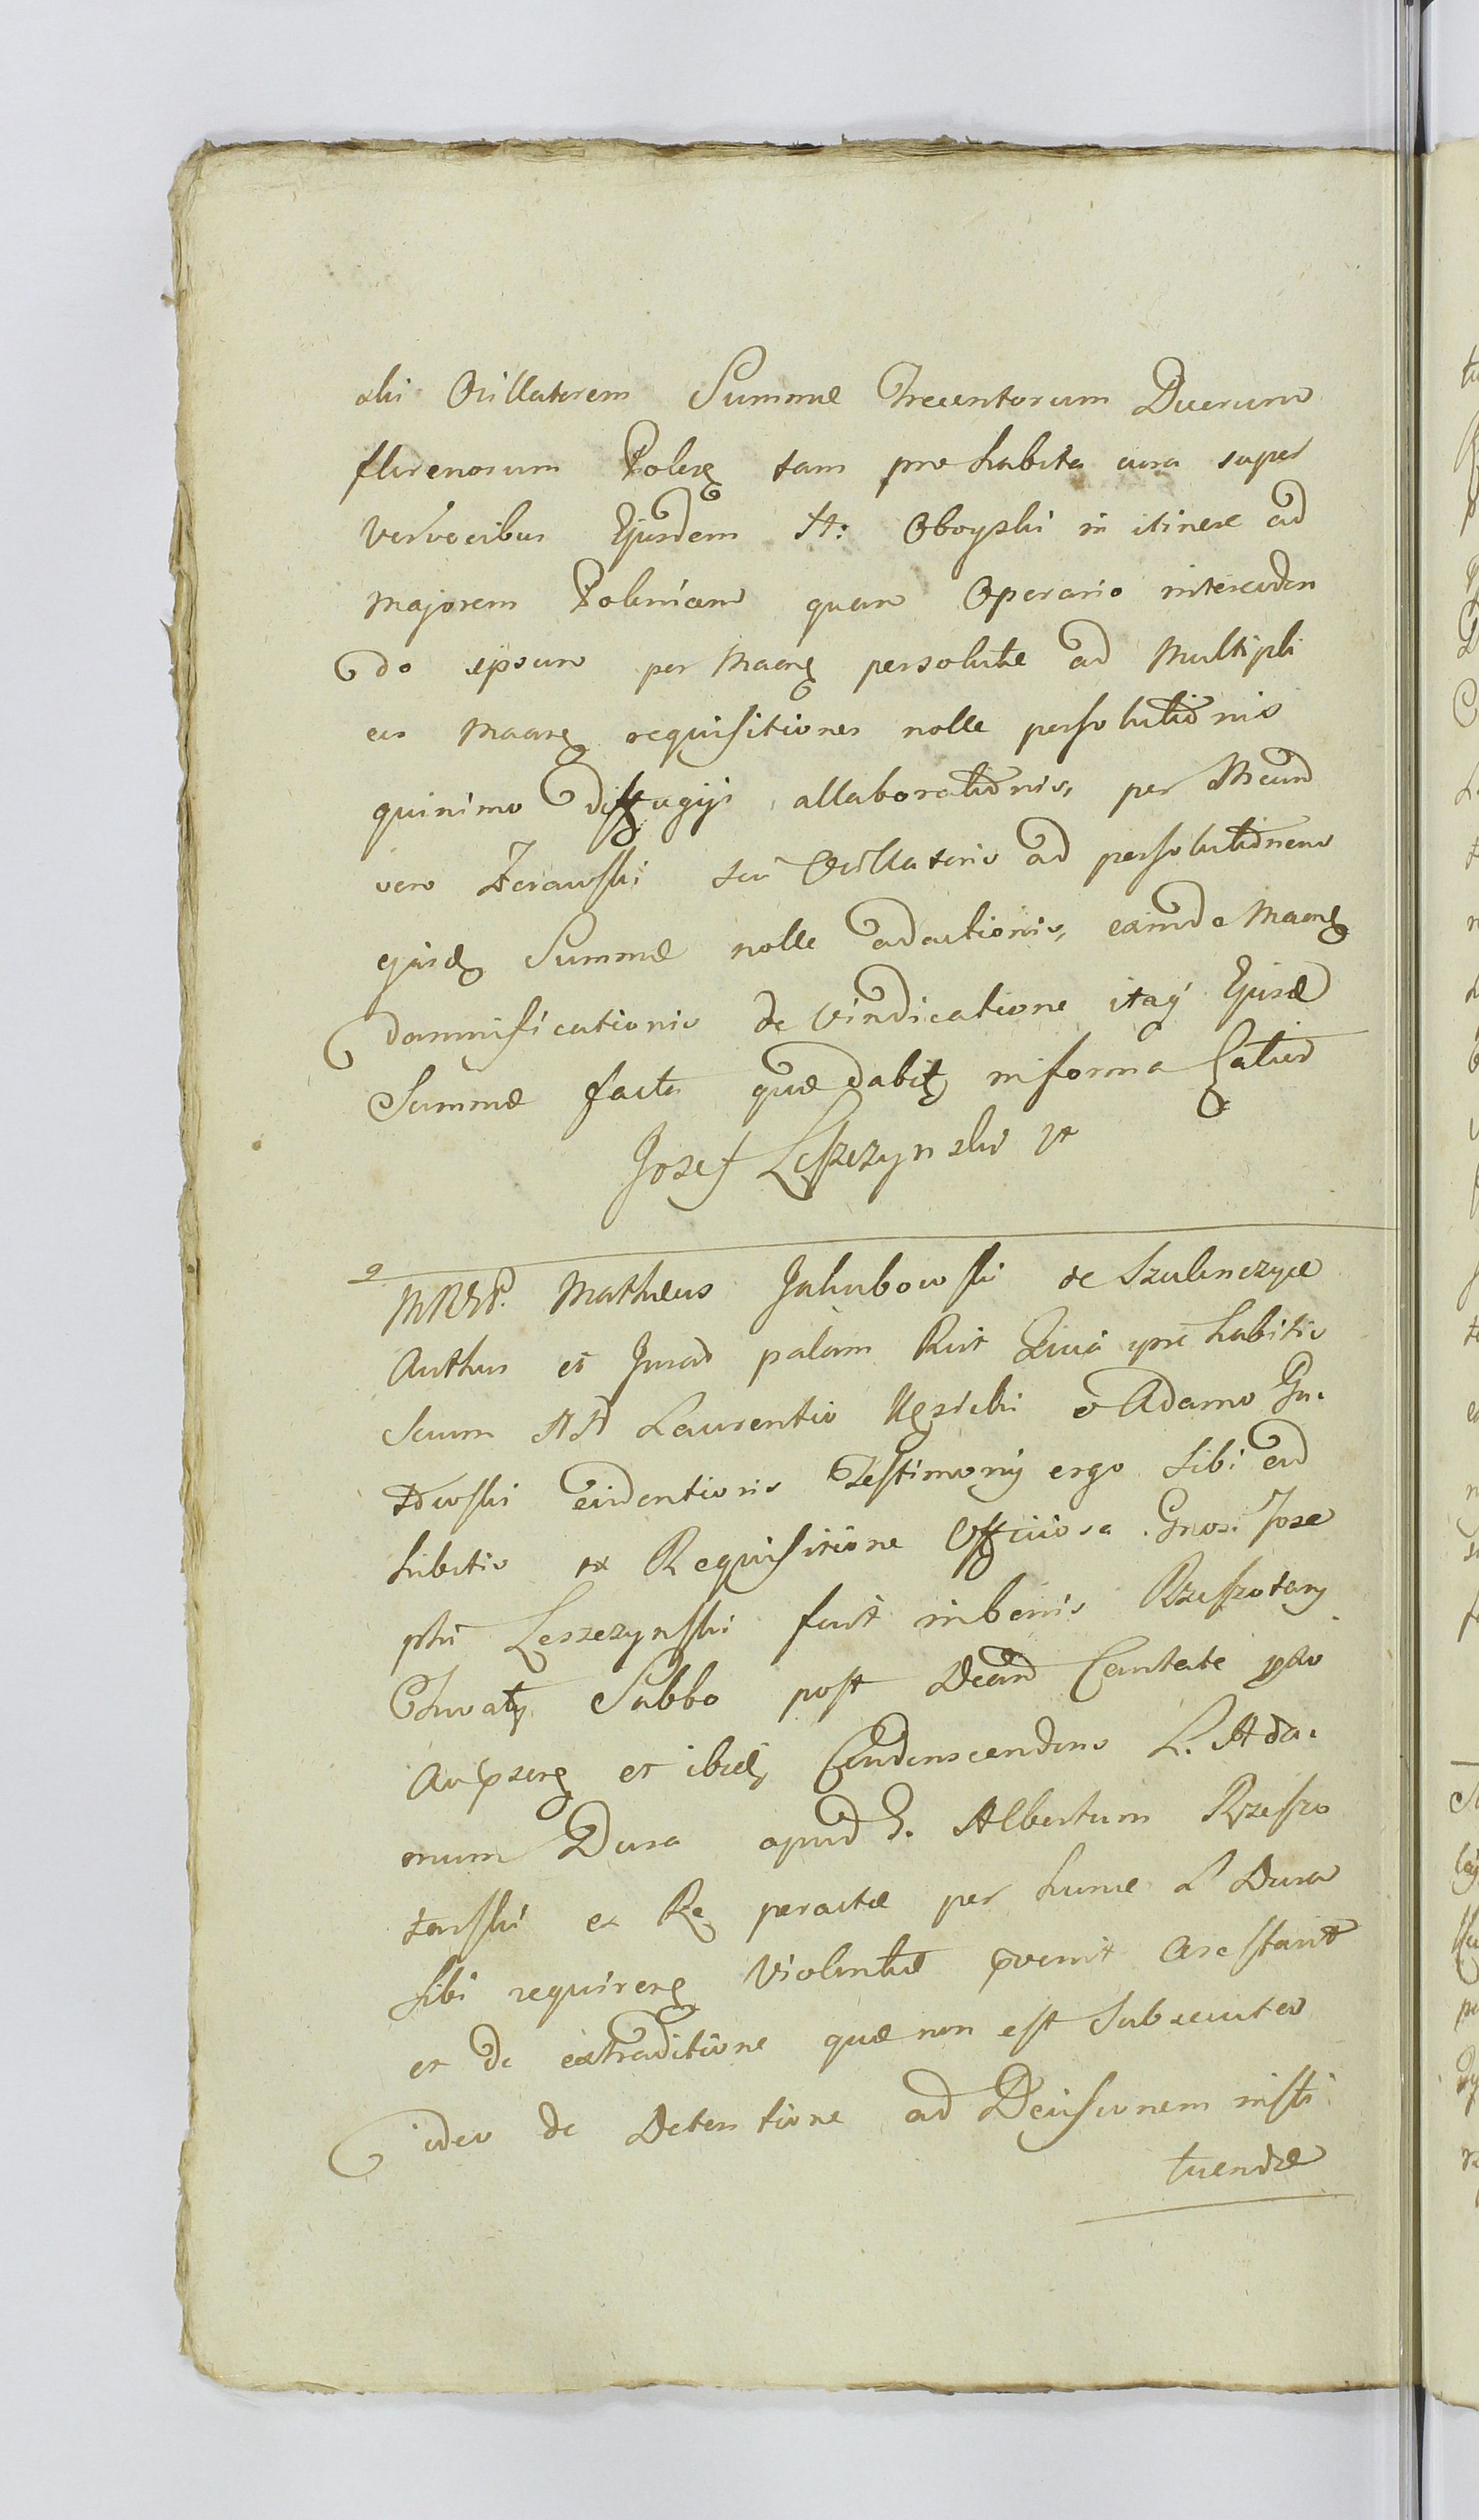 ski Ovillatorem Summæ Trecentorum Duorum
florenorum Polag tam pro habita cura super
Vervecibus Ejusdem N: Oboyski in itinere ad
Majorem Poloniam quam Operario interceden
do ipsum per Maarg persolutæ ad Multipli
ces Maarg requisitiones nolle persolutionis
quinimo diffugiji allaborationis, per Meund
vero Zerawski seu Ovillatoris ad persolutionem
ejusd Summæ nolle adactionis, eamde Maarg
damnificationis de vindicatione itaq Ejusd
Summæ facta quæ dabit in forma
Josef Leszczynski
MRSP. Matheus Jakubowski de Szulmczyce
Authus et Jurad palam Rit Quia ipse habitis
secum NN Laurentio et Adamo
evidentioris Testimonij ergo sibi ad
hibitis ex Requisitione Officiosa Gnos. Jose
phi Leszczynski fuit in bonis Rzeszotary
Chwaty Sabbo post Dcam Cantate
et ibid Condenscendens L. Ada.
mum Dura apud G. Albertum Rzeszo
tarski ex Re peractæ per hunc L Dura
sibi requireng Violentiæ pvenit arestavit
et de extraditione quæ non est subsecuta
ideo de Detentione ad Decisionem insti
tuendæ